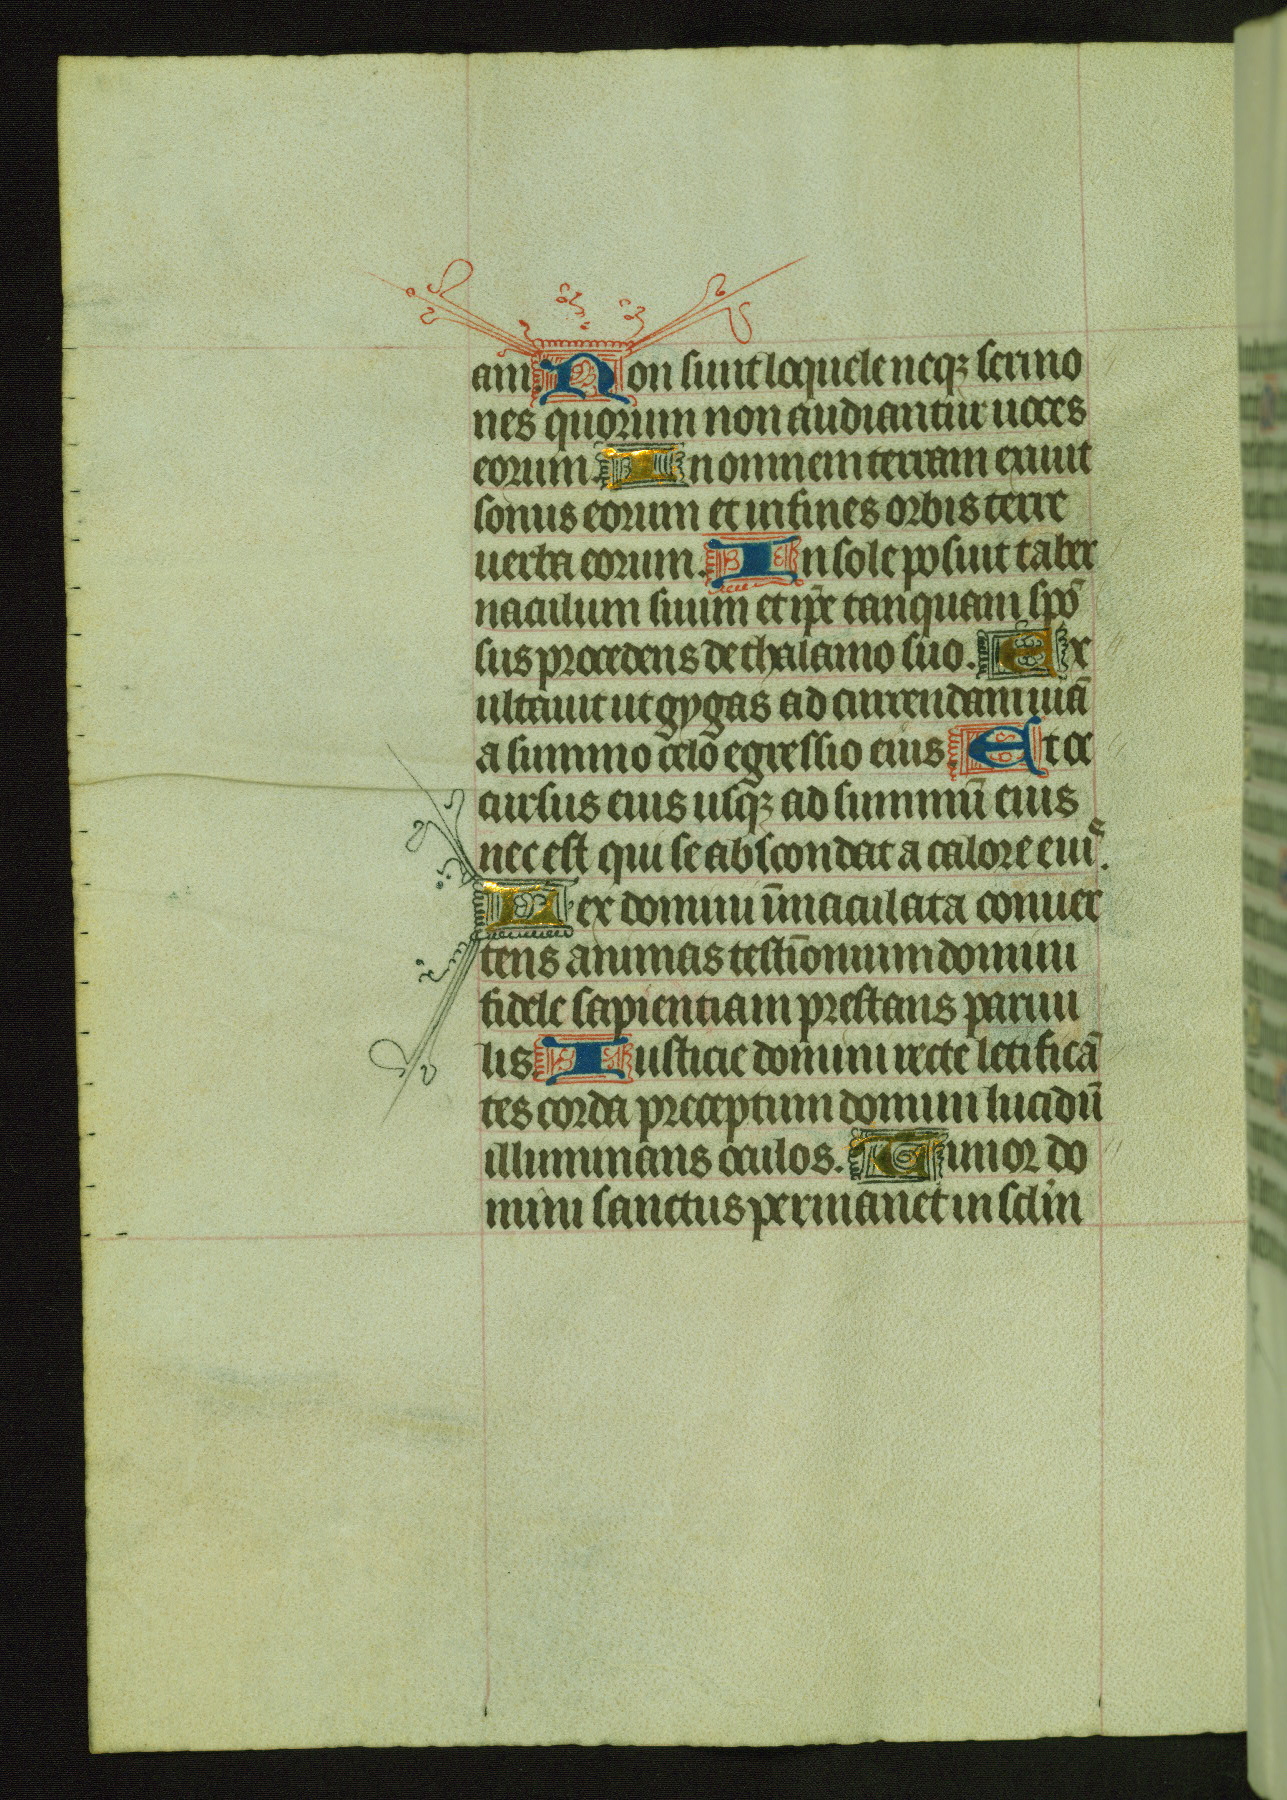 am. Non sunt loquele neqꝫ sermo
nes quorum non audiantur uoces
eorum. In omnem terram exiuit
sonus eorum et in fines orbis terre
uerba eorum. In sole posuit taber
naculum suum et ip̄e tanquam spō
sus procedens de thalamo suo. Ex
ultauit ut gygas ad currendam uiā
a summo celo egressio eius Et oc
cursus eius usqꝫ ad summū eius
nec est qui se abscondat a calore eiuˢ.
Lex domini īmaculata conuer
tens animas testīonium domini
fidele sapientiam prestans paruu
lis Iusticie domini recte letificā
tes corda preceptum domini lucidū
illuminans oculos. Timor do
mini sanctus permanet in sclm̄